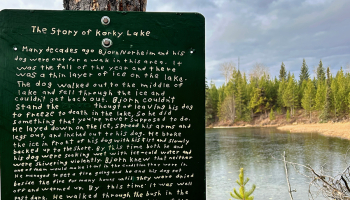 The Story of Kanky Lake
Many decades ago Bjorn Norheim and his
dog were out for a walk in this area. It
was the fall of the year and there
was a thin layer of ice on the lake.
The dog walked out to the middle of
lake and fell through the ice and
couldn't get back out. Bjorn couldn't
stand the thought of leaving his dog
to freeze to death in the lake, so he did
something that you're never supposed to do.
He layed down on the ice, spread his arms and
legs out, and inched out to his dog. He broke
the ice in front of his dog with his fist and slowly
backed up to the shore. By this time both he and
his dog were soaking wet with ice-cold water and
were shivering violently. Bjorn knew that neither
one of them would make it out in the condition they were in.
He managed to get a fire going and he and his dog sat
beside the fire for many hours until they were dried
off and warmed up. By this time it was well
past dark. He walked through the bush in the